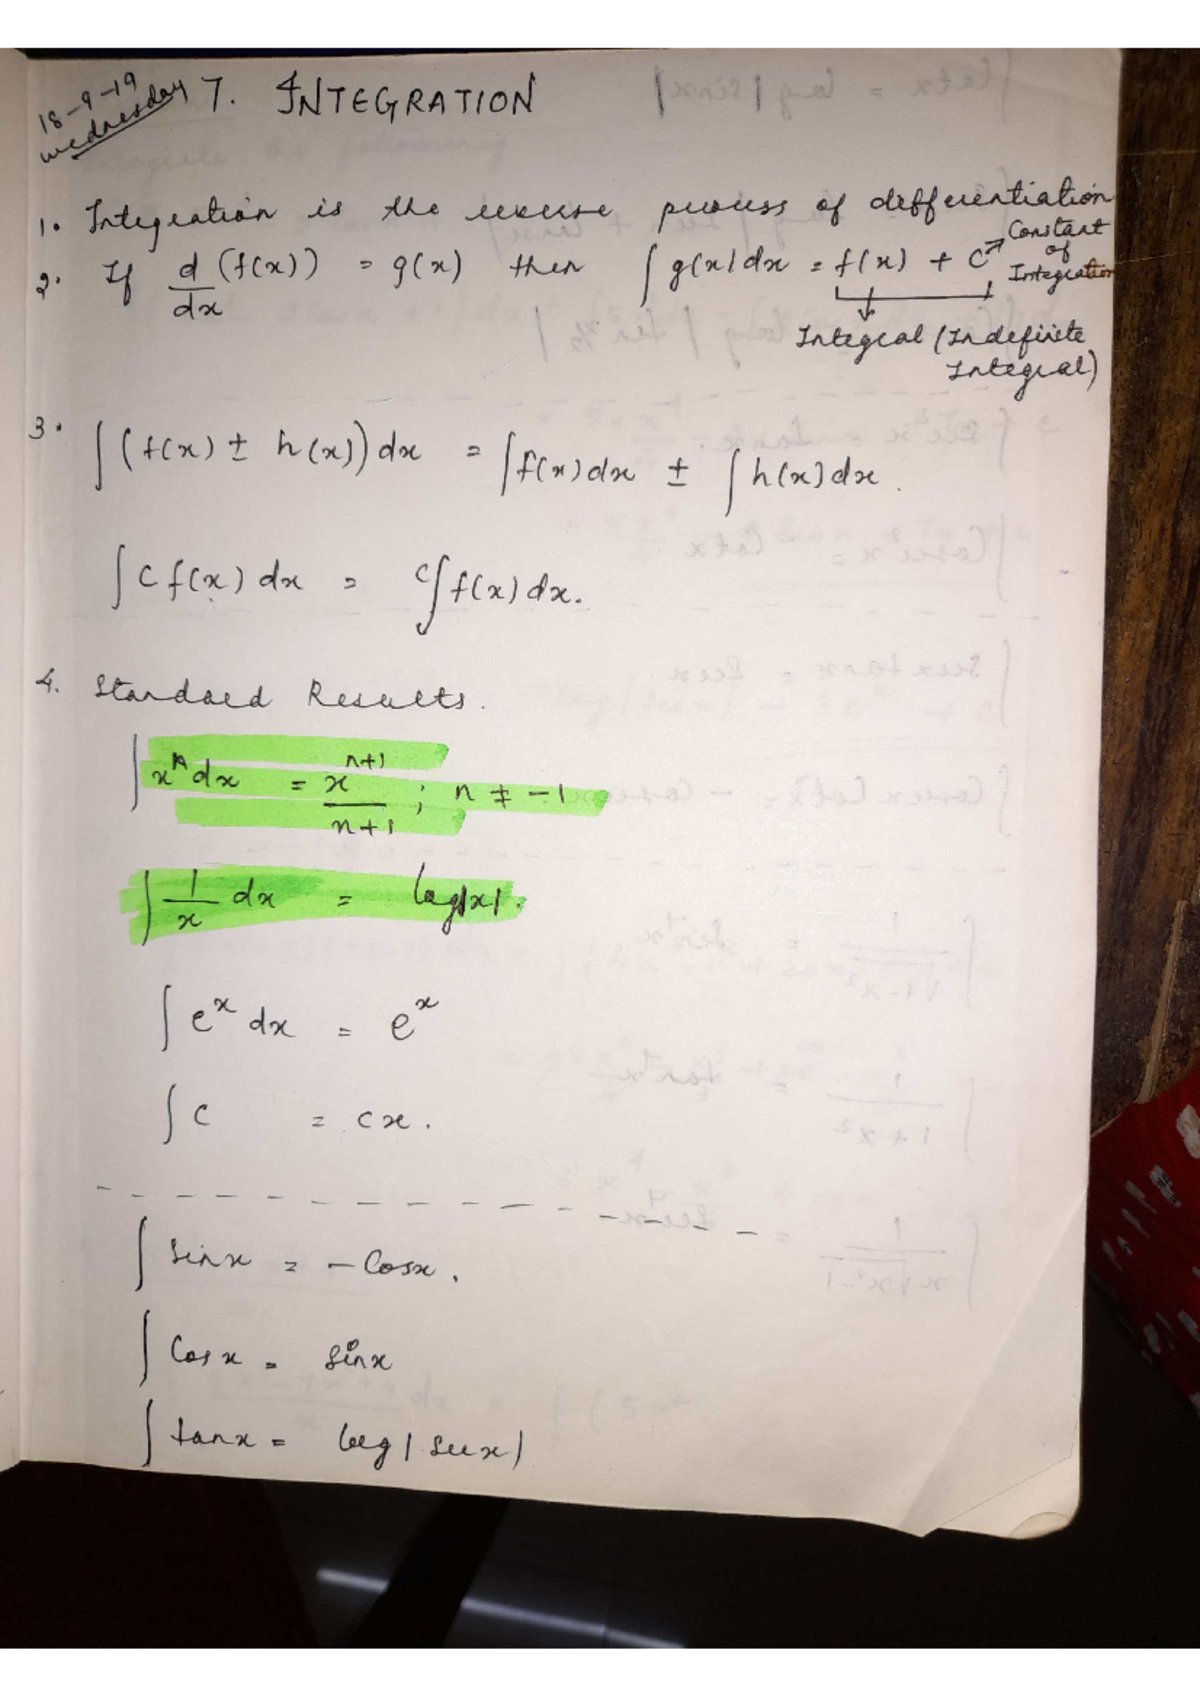 18-9-19
Wednesday
7. INTEGRATION
1. Integration is the reverse process of differentiation
2. If d/dx (f(x)) = g(x) then ∫ g(x)dx = f(x) + C → Constant of Integration
Integral (Indefinite
Integral)
3. ∫ (f(x) ± h(x)) dx = ∫ f(x) dx ± ∫ h(x) dx.
∫ C f(x) dx = C ∫ f(x) dx.
4. Standard Results.
∫ xⁿ dx = x^(n+1)/(n+1) ; n ≠ -1
∫ 1/x dx = log|x|.
∫ eˣ dx = eˣ
∫ C = Cx.
∫ Sinx = - Cosx.
∫ Cosx = Sinx
∫ tanx = log|Secx|